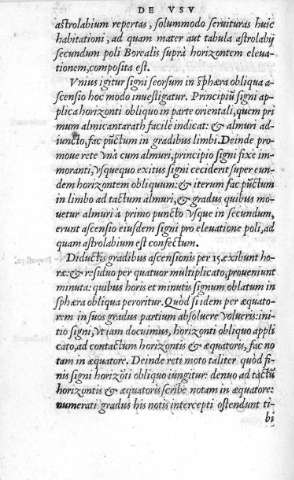 DE VSV
astrolabium repertas, solummodo seruituras huic
habitationi, ad quam mater aut tabula astrolabij
secundum poli Borealis suprà horizontem eleua-
tionem, composita est.
Vnius igitur signi seorsum in sphæra obliqua a-
scensio hoc modo inuestigatur. Principiũ signi ap-
plica horizonti obliquo in parte orientali, quem pri
mum almicantarath facilè indicat: & almuri ad-
iuncto, fac pũctum in gradibus limbi. Deinde pro-
moue rete vnà cum almuri, principio signi fixè im-
moranti, vsquequo exitus signi ceciderit super eun-
dem horizontem obliquum: & iterum fac pũctum
in limbo ad tactum almuri, & gradus quibus mo-
uetur almuri à primo puncto vsque in secundum,
erunt ascensio eiusdem signi pro eleuatione poli, ad
quam astrolabium est confectum.
Diductis gradibus ascensionis per 15, exibunt ho-
ræ: & residuo per quatuor multiplicato, proueniunt
minuta: quibus horis et minutis signum oblatum in
sphæra obliqua peroritur. Quòd si idem per æquato-
rem in suos gradus partium absoluere volueris: ini-
tio signi, vt iam docuimus, horizonti obliquo appli
cato, ad contactum horizontis & æquatoris, fac no
tam in æquatore. Deinde reti moto taliter quòd fi-
nis signi horizõti obliquo iungitur: denuo ad tactũ
horizontis & æquatoris scribe notam in æquatore:
numerati gradus his notis intercepti ostendunt ti-
bi